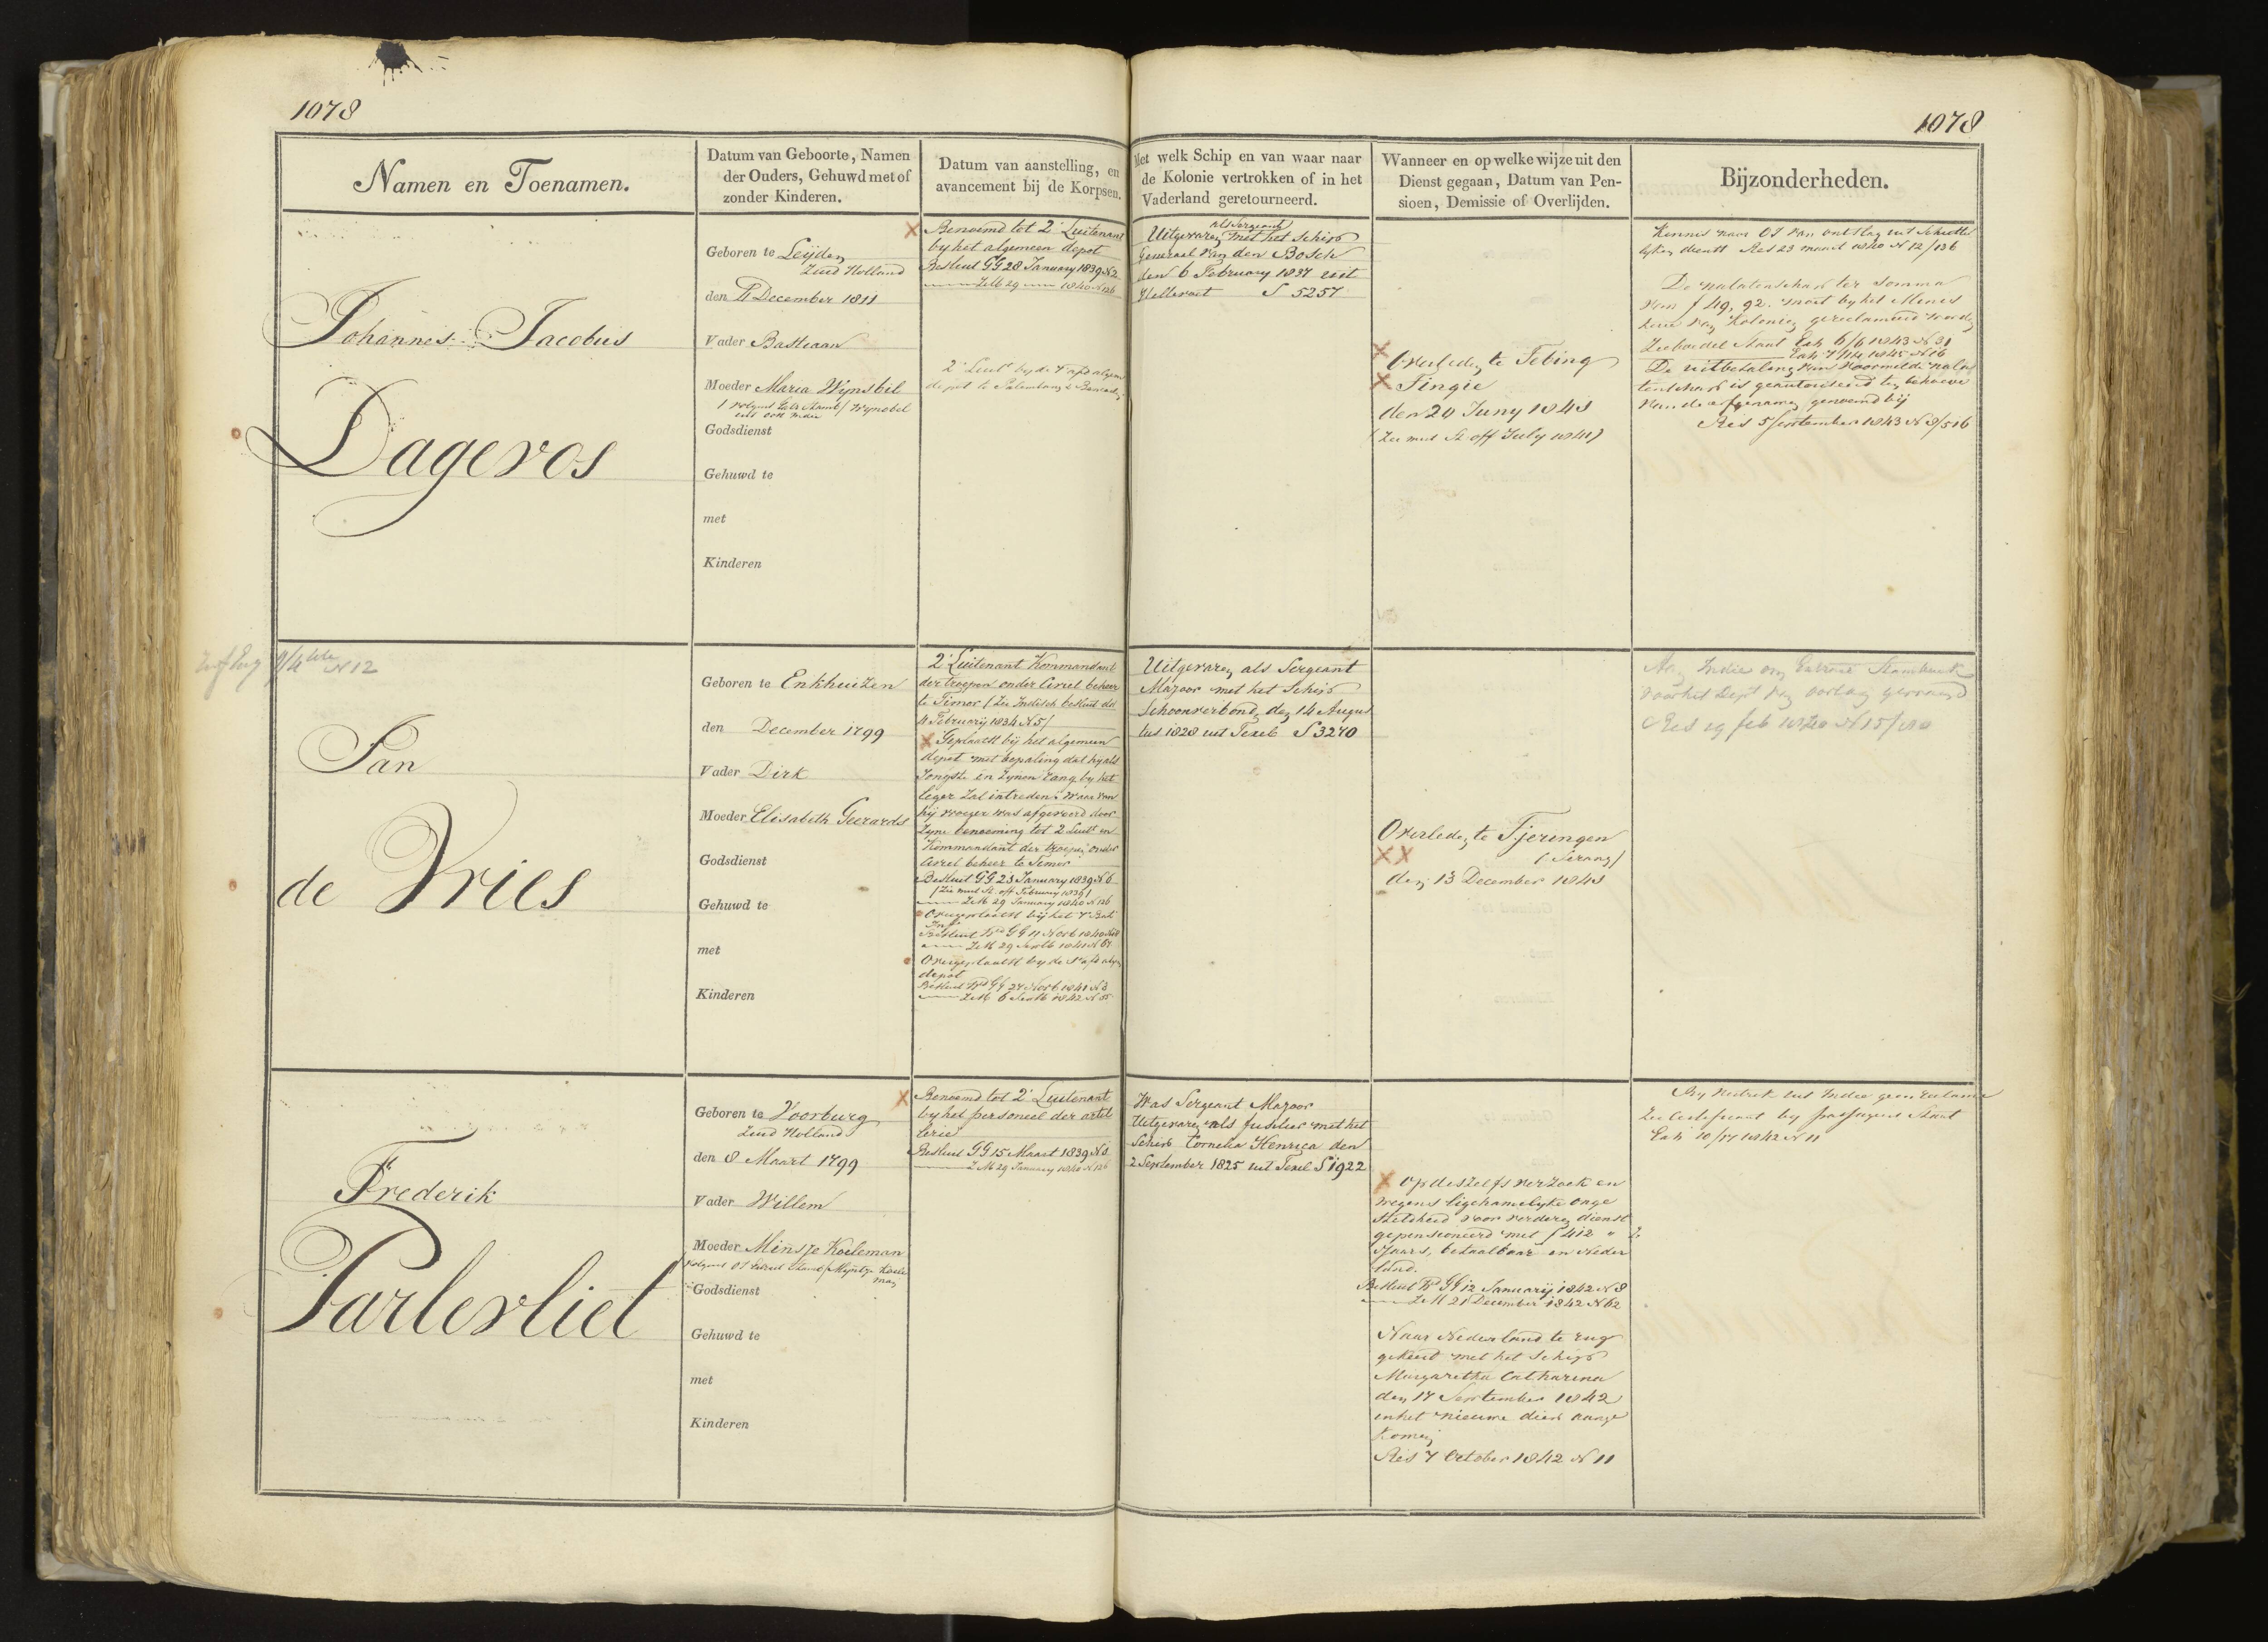 1078
1078
Namen en Toenamen.
Datum van Geboorte, Namen
der Ouders, Gehuwd met of
zonder Kinderen.
Datum van aanstelling, en
avancement bij de Korpsen.
Met welk Schip en van waar naar
de Kolonie vertrokken of in het
Vaderland geretourneerd.
Wanneer en op welke wijze uit den
Dienst gegaan, Datum van Pen-
sioen, Demissie of Overlijden.
Bijzonderheden.
Johannes Jacobus
Dageros
Geboren te Leijden
Zuid Holland
den December 1811
Vader Bastiaan
Moeder Maria Wijnsbil
Godsdienst
Gehuwd te
met
Kinderen
Benoemd tot 2e Luitenant
by het algemeen depot
Besluit GG 28 January 1839 N 2
ZeM 29 1840 N 126
2e Luitt by de
depot te Palembang &
als Sergeant
Uitgevaren met het Schip
Generaal van den Bosch
den 6 February 1837 uit
Hellevoet S 5257
Overleden te Tebing
Tingie
den 20 Juny 1841
(Zie July 1841)
Kennis van OI van ontslag uit
dienst Res 23 maart 1840 N 12/136
De nalatenschap ter somma
van f 49,92. moet by het Minis
terie van Kolonien gereclameerd worden
Zie boedel Staat Exh 6/6 1843 N 31
De uitbetaling van voormelde nala
tenschap is geautoriseerd ten behoeve
van de erfgenamen genoemd bij
Res 5 September 1843 N 8/516
N 12
Jan
de Vries
Geboren te Enkhuizen
den December 1799
Vader Dirk
Moeder Elisabeth Geerards
Godsdienst
Gehuwd te
met
Kinderen
2e Luitenant Kommandant
der troepen onder Civiel beheer
te Timor (Zie Indisch besluit dd
4 February 1834 N 5)
Geplaatst bij het algemeen
depot met bepaling dat hij als
Jongste in zynen rang by het
leger zal intreden, waar van
hij vroeger was afgevoerd door
zyne benoeming tot 2 Luitt en
Kommandant der troepen onder
Civiel beheer te Timor
Besluit GG 23 January 1839 N 6
(Zie mut St. off February 1839)
ZeM 29 January 1840 N 126
Overgeplaatst bij het 7 Bat
Inf
ZeM 29 Septb 1841 N 67
Overgeplaatst by de
depot
Uitgevaren als Sergeant
Majoor met het Schip
Schoonverbond den 14 Augus
tus 1828 uit Texel S 3270
Overleden te Tjeringen
(Serang)
den 13 December 1843
Aan Indie om Extract Stamboek
voor het Dept van oorlog gevraagd
Frederik
Parlevliet
Geboren te Voorburg
Zuid Holland
den 8 Maart 1799
Vader Willem
Moeder Minsje Koeleman
Godsdienst
Gehuwd te
met
Kinderen
Benoemd tot 2e Luitenant
by het personeel der artil
lerie
Besluit GG 15 Maart 1839 N 1
ZeM 29 January 1840 N 126
Was Sergeant Majoor
Uitgevaren als fuselier met het
Schip Cornelia Henrica den
2 September 1825 uit Texel S 1922
Op deszelfs verzoek en
wegens ligchamelyke onge
steldheid voor verderen dienst
gepensioneerd met f 412
Jaars, betaalbaar in Neder
land.
Besluit GG 12 Januarij 1842 N 8
ZeM 21 December 1842 N 62
Naar Nederland te rug
gekeerd met het Schip
Margaretha Catharina
den 17 September 1842
in het nieuwe diep aange
komen
Res 7 October 1842 N 11
By vertrek uit Indie geen reclame
Zie by passagiers Staat
Exh 10/17 1842 N 11